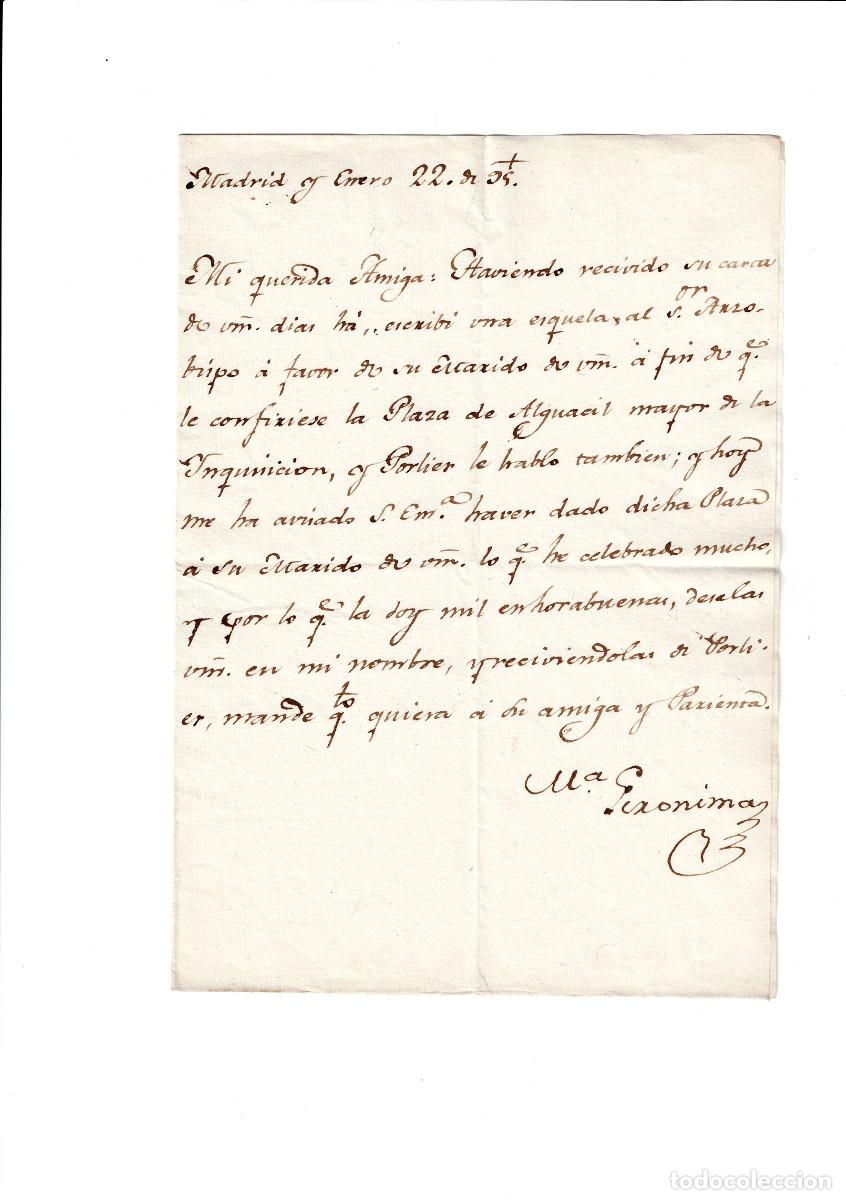 +
Madrid y Enero 22. de 95.
Mi querida Amiga: Haviendo recivido su carta
de vm. dias há, escribí una esquela, al S.or Arzo-
bispo á favor de su Marido de vm. á fin de q.e
le confiriese la Plaza de Alguacil mayor de la
Inquisicion, y Porlier le hablo tambien; y hoy
me ha avisado S. Em.a haver dado dicha Plaza
á su Marido de vm. lo q.e he celebrado mucho,
y por lo q.e la doy mil enhorabuenas, deselas
vm. en mi nombre, y reciviendolas de Porli-
er, mande q.to quiera á su amiga y Parienta.
M.a Geronima
todocoleccion